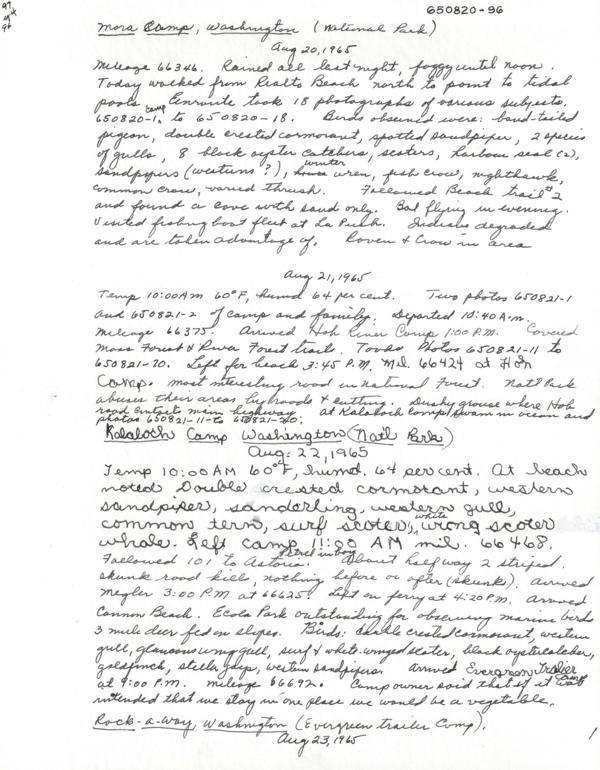 650820-96
Mora Camp, Washington (National Park)
Aug 20, 1965
Mileage 66346. Rained all last night, foggy until noon.
Today walked from Rialto Beach north to point to tidal
pools camp Enroute took 18 photographs of various subjects.
650820-1. to 650820-18. Birds observed were: band-tailed
pigeon, double crested cormorant, spotted sandpiper, 2 species
of gulls, 8 black oyster catchers, scoters, harbour seal (2),
sandpipers (westerns?), winter wren, fish crow, nighthawk,
common crow, varied thrush. Followed Beach trail #2
and found a cove with sand only. Bat flying in evening.
Visited fishing boat fleet at La Push. Indians degraded
and are taken advantage of. Raven & Crow in area
Aug 21, 1965
Temp 10:00 AM 60°F, humd 64 per cent. Two photos 650821-1
and 650821-2 of camp and family. Departed 10:40 A.m.
Mileage 66375. Arrived Hoh River Camp 1:00 P.M. Covered
Moss Forest & River Forest trails. Took Photos 650821-11 to
650821-20. Left for beach 3:45 P.M. Mil. 66424 at Hoh
Camp. most interesting road in National Forest. Nat'l Park
abuses their areas by roads & cutting. Dusky grouse where Hoh
road contacts main highway. At Kalaloch Camp swam in ocean and
photos 650821-11 to 650821-20.
Kalaloch Camp Washington (Nat'l Park)
Aug. 22, 1965
Temp 10:00 AM 60°F, humd. 64 per cent. At beach
noted Double crested cormorant, western
sandpiper, sanderling, western gull,
common tern, surf scoter, white wrong scoter
whale. Left camp 11:00 AM mil. 66468.
Followed 101 to Astoria. About half way 2 striped
skunk road kills, nothing before or after (skunk). Arrived
Megler 3:00 P.M at 66625. Left on ferry at 4:20 P.M. Arrived
Cannon Beach. Ecola Park outstanding for observing marine birds
3 mule deer fed on slopes. Birds: double crested cormorant, western
gull, glaucous wing gull, surf & white-winged scoter, black oystercatcher,
goldfinch, steller jays, western sandpipers. Arrived Evergreen Trailer Camp
at 9:00 P.M. mileage 66692. Camp owner said that if it was
intended that we stay in one place we would be a vegetable.
Rock-a-way, Washington (Evergreen trailer Camp).
Aug 23, 1965